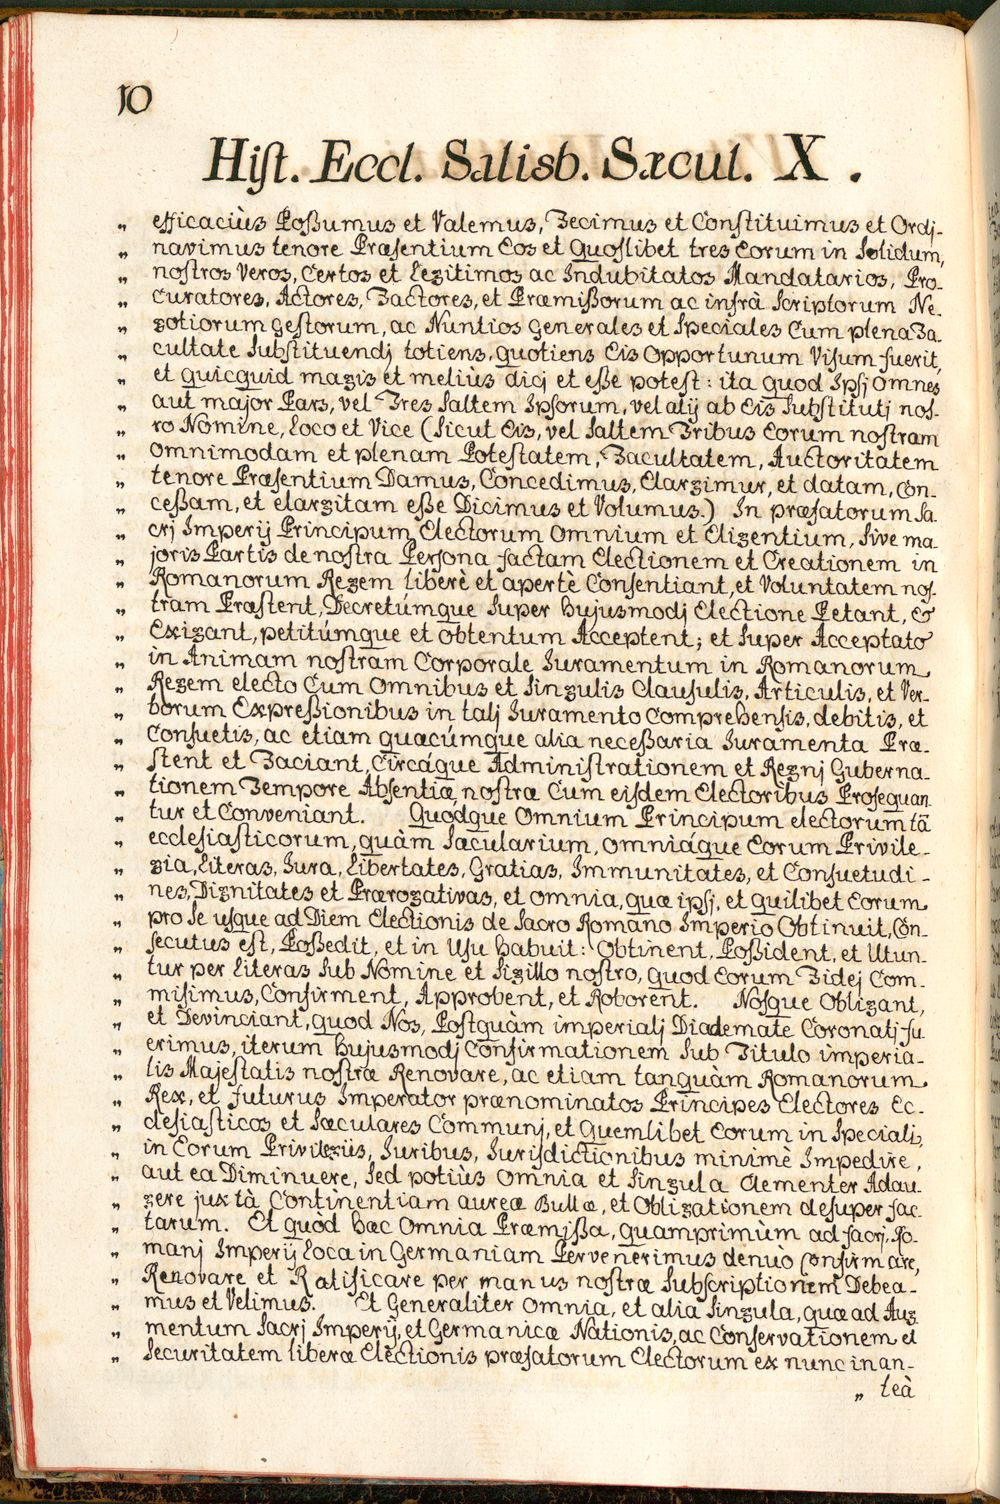 10
Hist. Eccl. Salisb. Sæcul. X.
„ efficaciùs Possumus et Valemus, Fecimus et Constituimus et Ordj-
„ navimus tenore Præsentium Eos et Quoslibet tres Eorum in Solidum,
„ nostros Veros, Certos et Legitimos ac Indubitatos Mandatarios, Pro-
„ Curatores, Actores, Factores, et Præmissorum ac infrà Scriptorum Ne-
„ gotiorum gestorum, ac Nuntios Generales et Speciales Cum plena Fa-
„ cultate Substituendj totiens, quotiens Eis Opportunum Visum fuerit,
„ et quicquid magis et meliùs dicj et esse potest: ita quod Ipsj Omnes
„ aut major Pars, vel Tres Saltem Ipsorum, vel alij ab Eis Substitutj nos-
„ ro Nomine, Loco et Vice (Sicut Eis, vel Saltem Tribus Eorum nostram
„ Omnimodam et plenam Potestatem, Facultatem, Auctoritatem
„ tenore Præsentium Damus, Concedimus, Elargimur, et datam, Con-
„ cessam, et elargitam esse Dicimus et Volumus.) In præfatorum Sa-
„ crj Imperij Principum Electorum Omnium et Eligentium, Sive ma-
„ joris Partis de nostra Persona factam Electionem et Creationem in
„ Romanorum Regem liberè et apertè Consentiant, et Voluntatem nos-
„ tram Præstent, Decretúmque Super hujusmodj Electione Petant, &
„ Exigant, petitúmque et obtentum Acceptent; et Super Acceptato
„ in Animam nostram Corporale Juramentum in Romanorum
„ Regem electo Cum Omnibus et Singulis Clausulis, Articulis, et Ver-
„ borum Expressionibus in talj Juramento Comprehensis, debitis, et
„ Consuetis, ac etiam quacúmque alia necessaria Juramenta Præ-
„ stent et Faciant, Circáque Administrationem et Regnj Guberna-
„ tionem Tempore Absentiæ nostræ Cum eisdem Electoribus Prosequan
„ tur et Conveniant. Quodque Omnium Principum electorum tã
„ ecclesiasticorum, quàm Sæcularium, omniáque Eorum Privile-
„ gia, Literas, Jura, Libertates, Gratias, Immunitates, et Consuetudi-
„ nes, Dignitates et Prærogativas, et omnia, quæ ipsj, et quilibet Eorum
„ pro Se usque ad Diem Electionis de Sacro Romano Imperio Obtinuit, Con-
„ secutus est, Possedit, et in Usu habuit: Obtinent, Possident, et Utun-
„ tur per Literas Sub Nomine et Sigillo nostro, quod Eorum Fidej Com-
„ misimus, Confirment, Approbent, et Roborent. Nosque Obligant,
„ et Devinciant, quod Nos, Postquàm imperialj Diademate Coronatj fu-
„ erimus, iterum hujusmodj Confirmationem Sub Titulo imperia-
„ lis Majestatis nostræ Renovare, ac etiam tanquàm Romanorum
„ Rex, et futurus Imperator prænominatos Principes Electores Ec-
„ clesiasticos et Sæculares Communj, et Quemlibet Eorum in Speciali,
„ in Eorum Privilegiis, Juribus, Jurisdictionibus minimè Impedire,
„ aut ea Diminuere, Sed potiùs Omnia et Singula Clementer Adau-
„ gere juxtà Continentiam aureæ Bullæ, et Obligationem desuper fac-
„ tarum. Et quòd hæc Omnia Præmissa, quamprimùm ad sacrj Ro-
„ manj Imperij Loca in Germaniam Pervenerimus denuò Confirmare,
„ Renovare et Ratificare per manus nostræ Subscriptionem Debea-
„ mus et Velimus. Et Generaliter Omnia, et alia Singula, quæ ad Aug
„ mentum Sacrj Imperij, et Germanicæ Nationis, ac Conservationem et
„ Securitatem liberæ Electionis præfatorum Electorum ex nunc in an-
„ teà